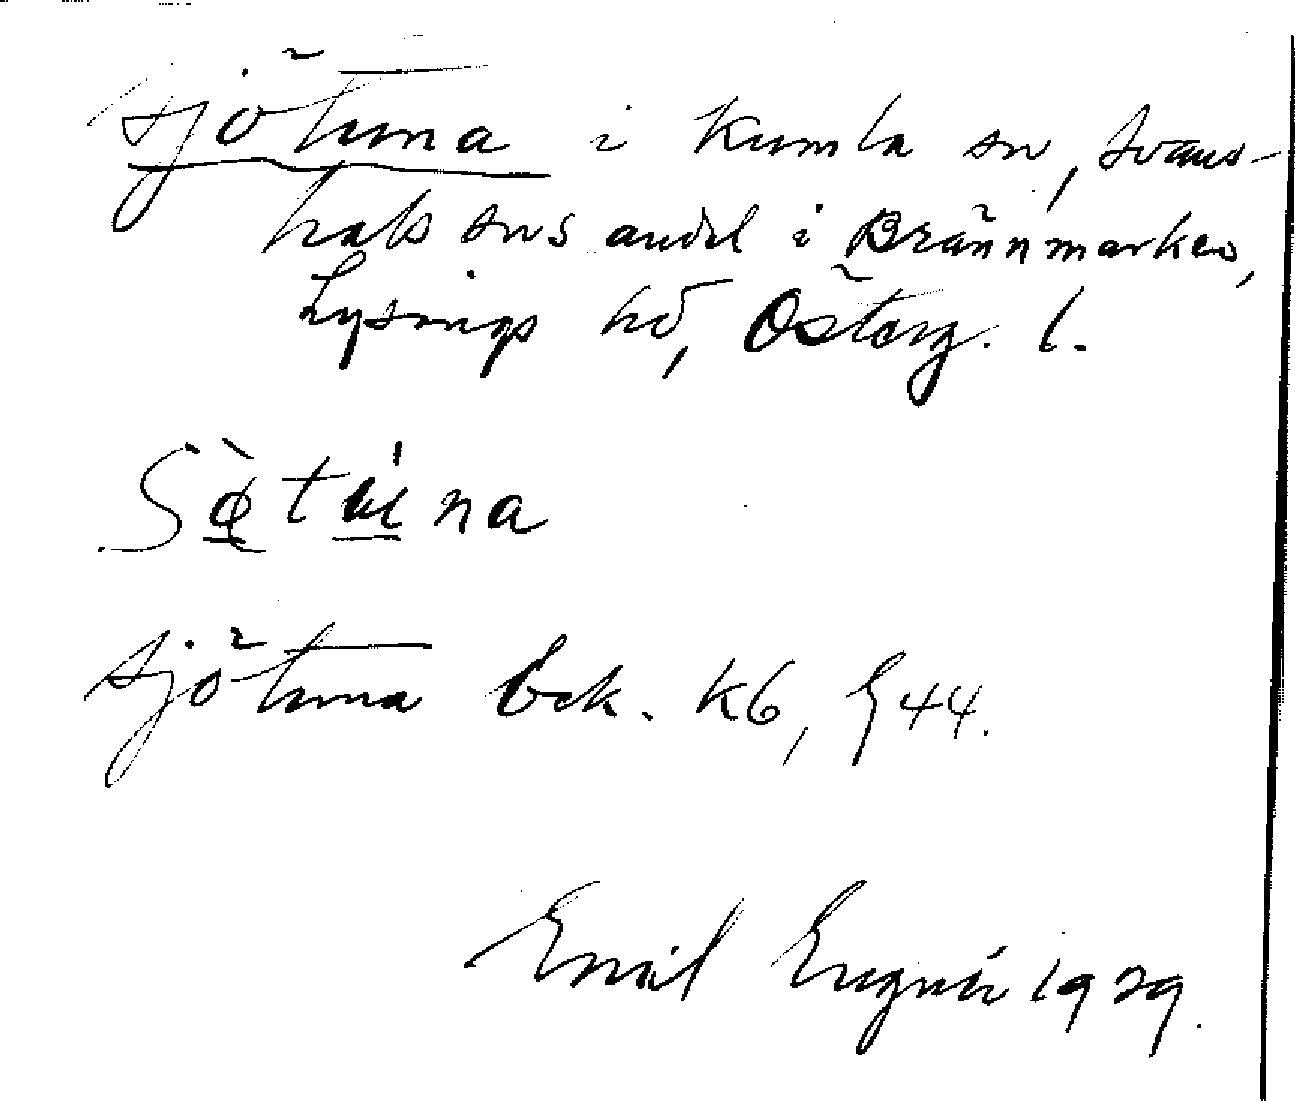 Sjötuna i Kumla sn, Svans-
hals sns andel i Brännmarken,
Lysings hd, Österg. l.
Sjötuna Eck. K6, § 44.
Emil 1929.